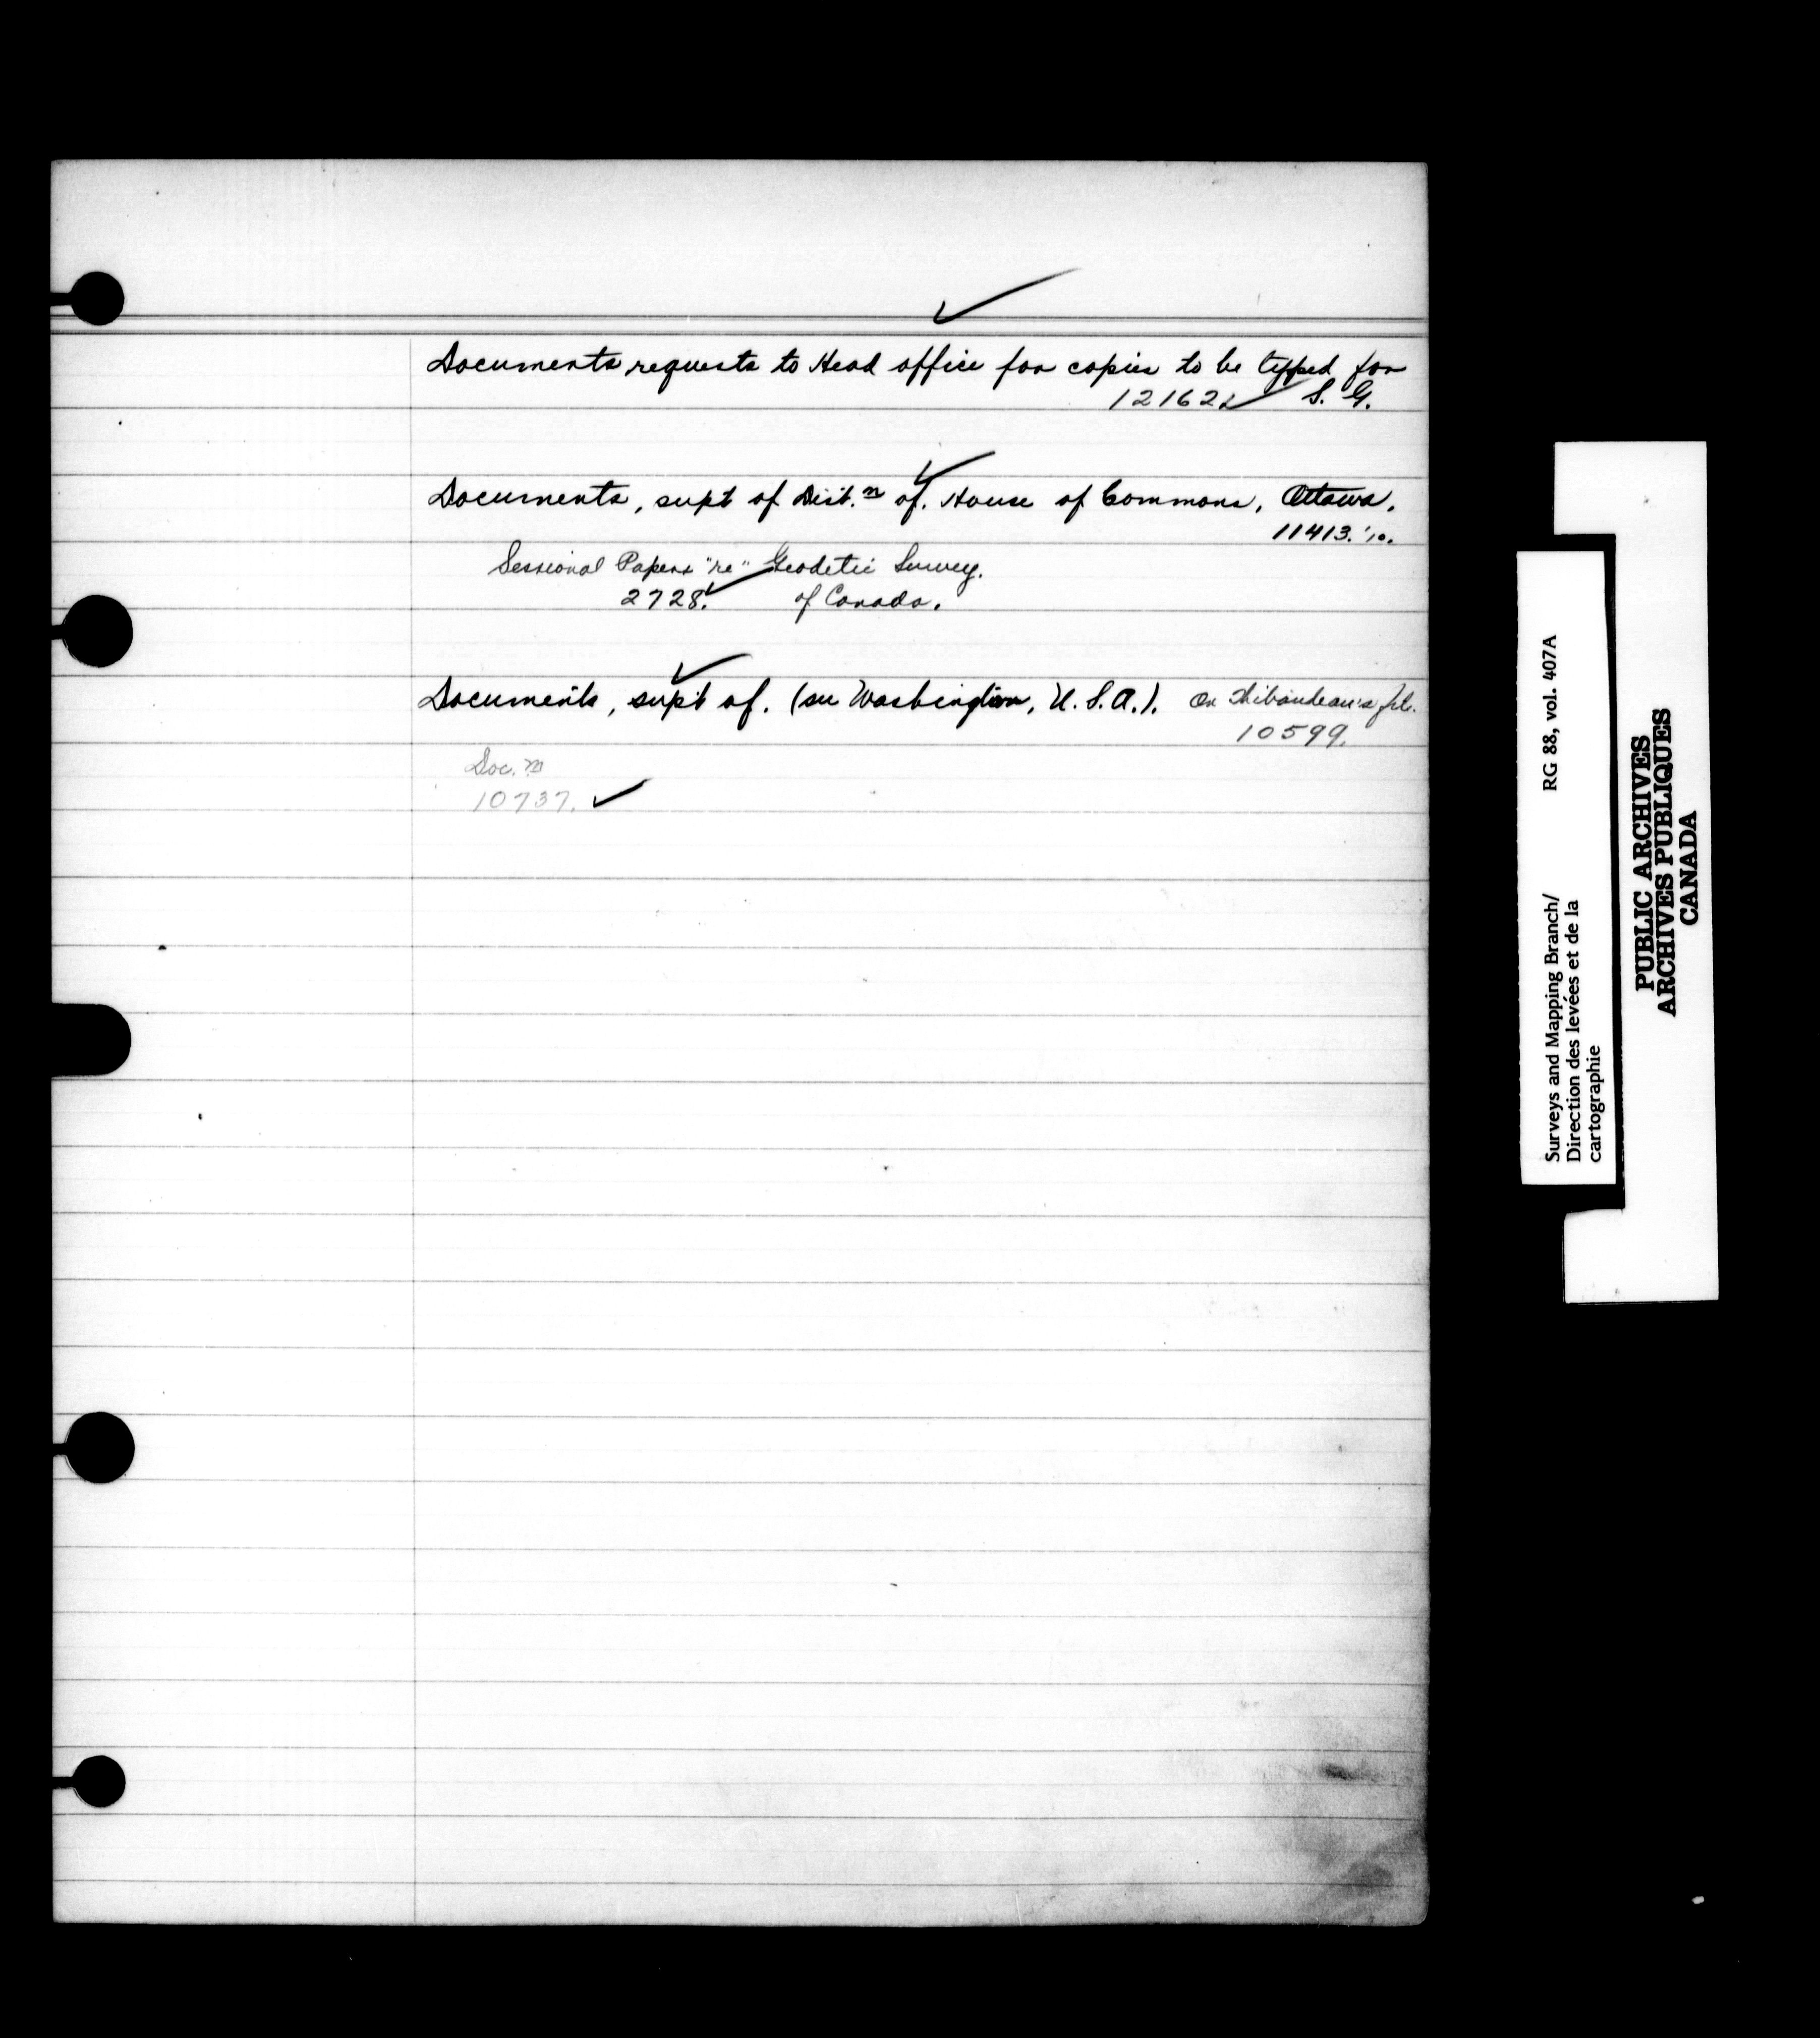 Documents requests to Head office for copies to be typed for
12162 S. G.
Documents, supt of Dist.n of. House of Commons, Ottawa.
11413.'10.
Sessional Papers "re" Geodetic Survey.
2728. of Canada.
Documents, supt of. (see Washington, U.S.A.). On Thibaudeau's file.
10599.
Doc. m
10737.
Surveys and Mapping Branch/
Direction des levées et de la
cartographie
RG 88, vol. 407A
PUBLIC ARCHIVES
ARCHIVES PUBLIQUES
CANADA